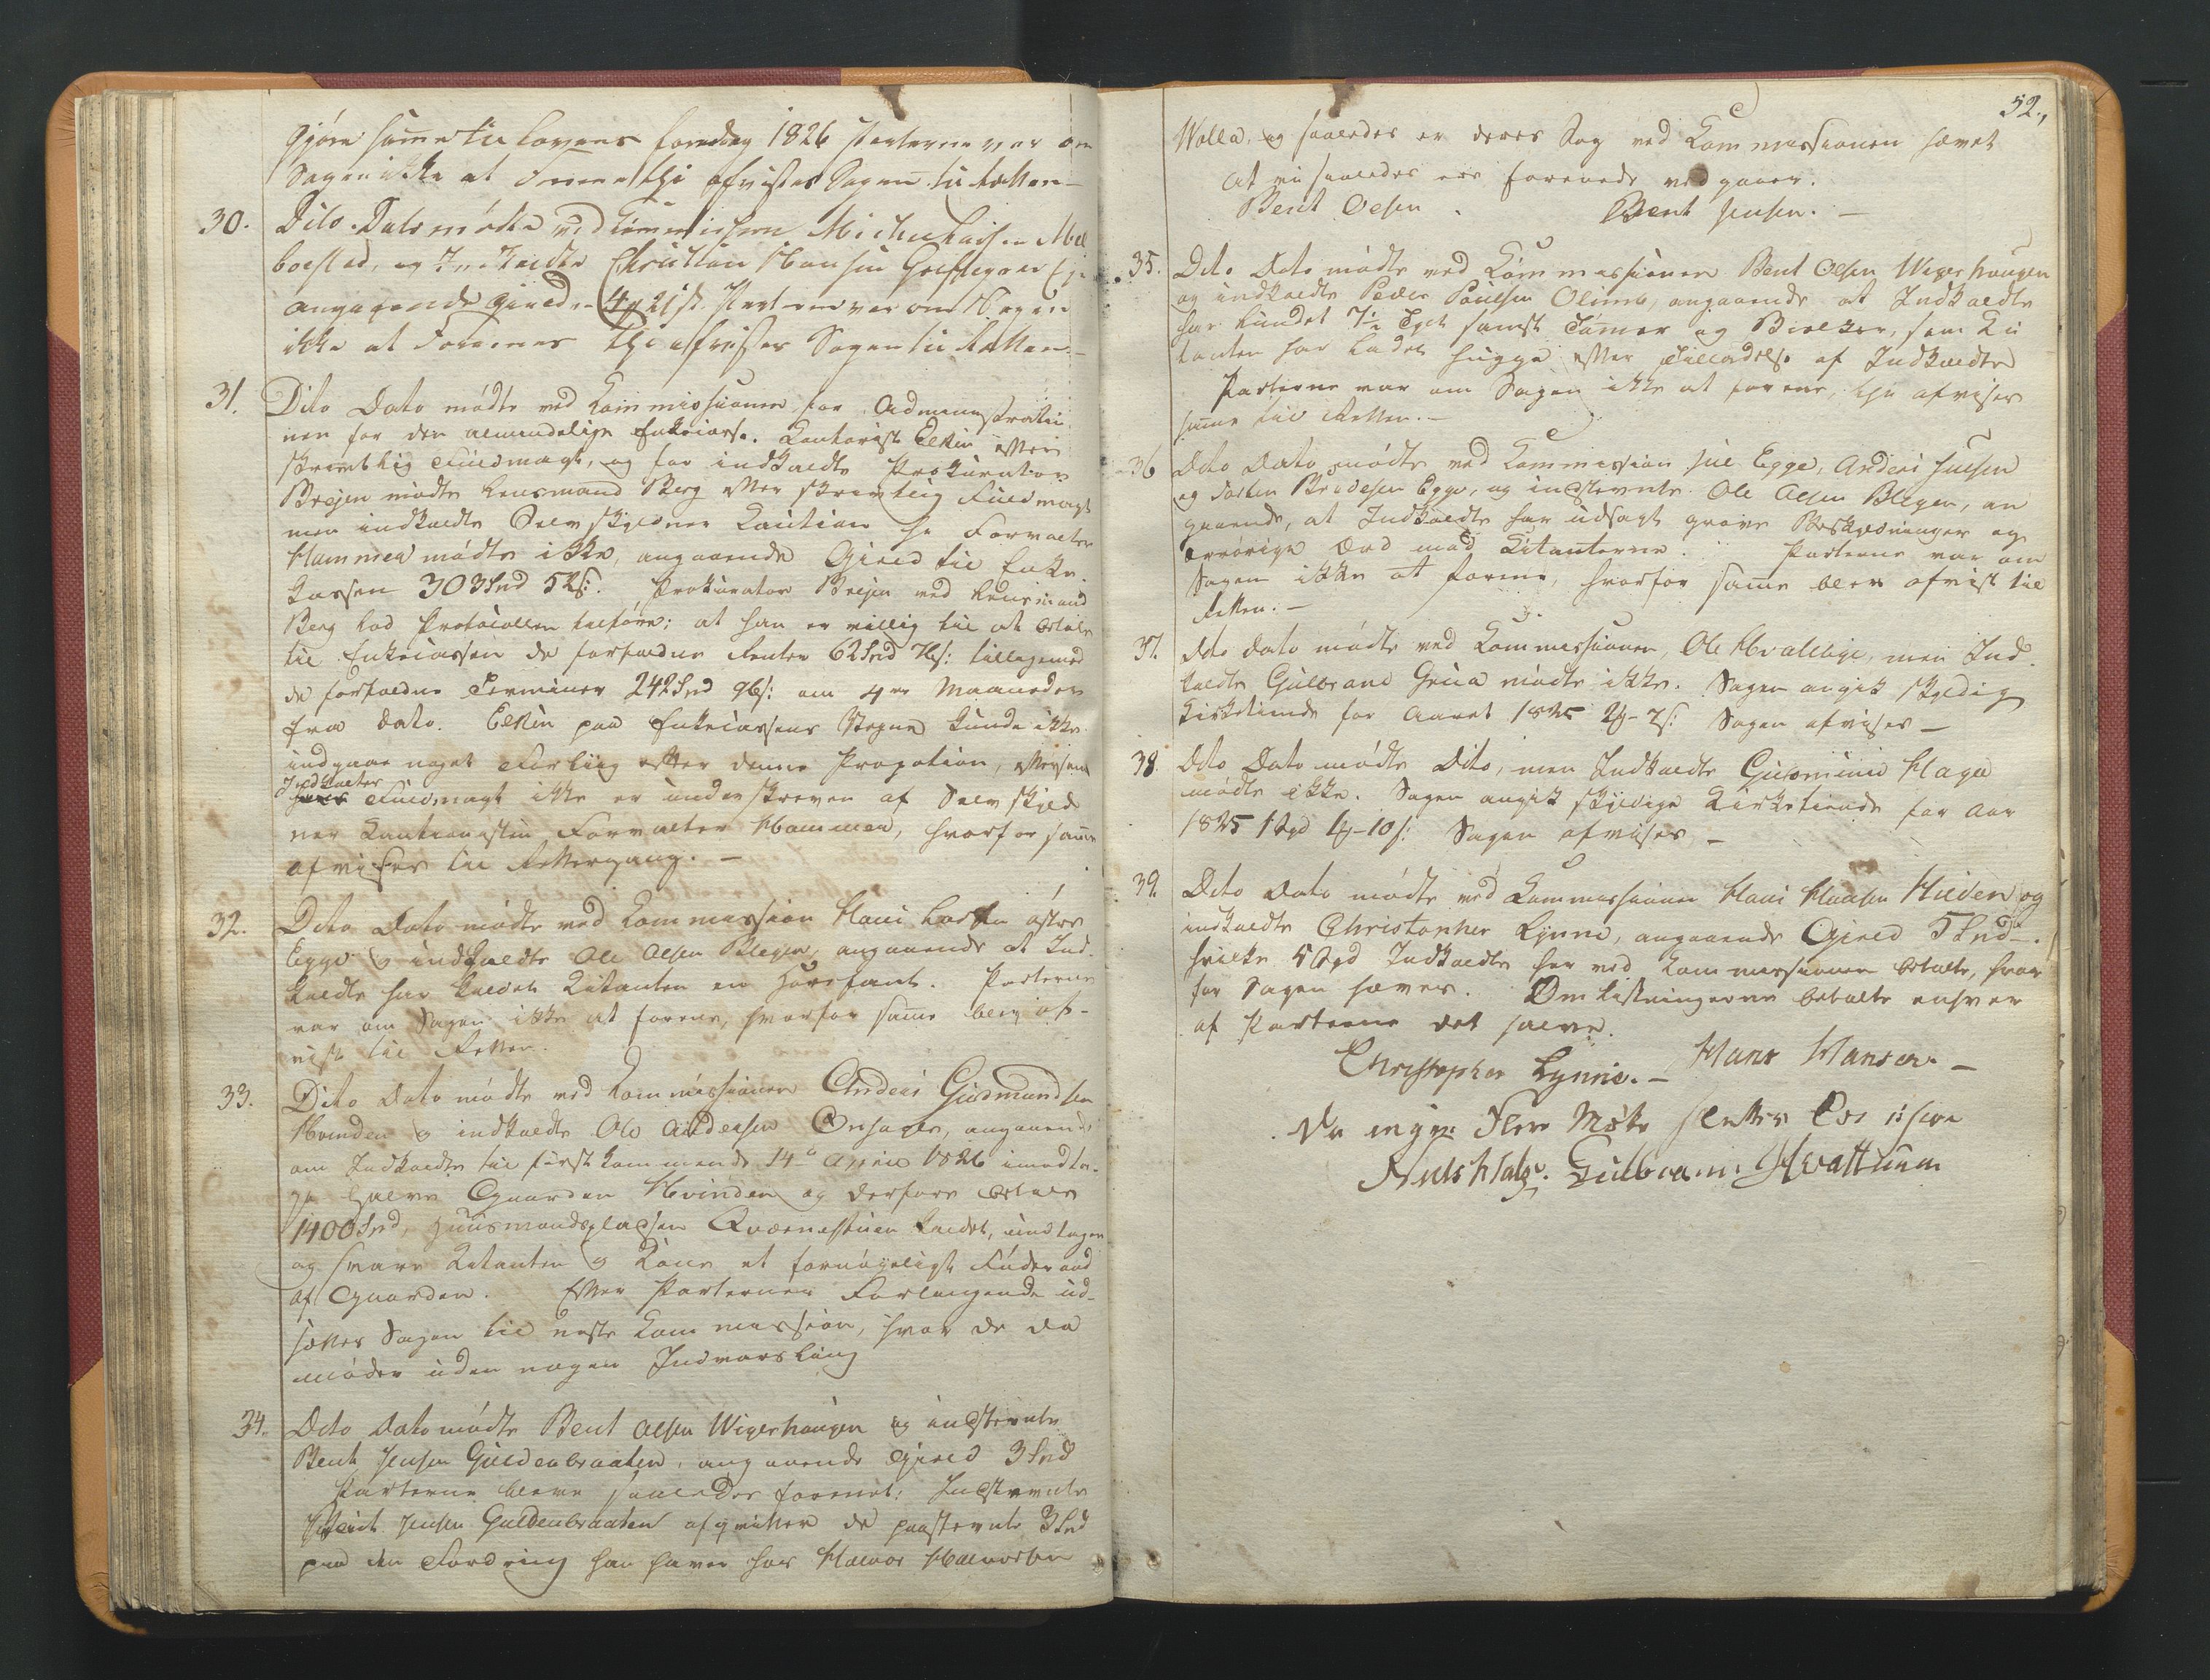 gjöre samme til Lovens foredrag 1826 Parterne var om
Sagen ikke at forene thi afvistes Sagen til Retten –
30. Dito Dato mødte ved Commissionen
boesstad, og Indkaldte Christian Hansen
angaaende Gield 4 21 s. Parterne var om Sagen
ikke at Forenes thi afvises Sagen til Retten –
31. Dito Dato mødte ved Kommissionen for Administratio
nen for den almindelige Enkekasse. Kontorist Elkin efter
skrivtlig Fuldmagt, og for indkaldte Prokurator
Brejen mødte Lensmand Berg efter skrivtlig Fuldmagt
men indkaldte Selvskyldner Kaution Hr Forvalter
Hammer mødte ikke, angaaende Gield til Enke
Kassen 303 Spd 52 s:. Prokurator Breien ved Lensmand
Berg lod Protocollen tilføre; at han er villig til at betale
til Enkekassen de forfaldne Renter 62 Spd 76 s: tilligemed
de forfaldne Terminer 242 Spd 96 s: om 4re Maaneder
fra Dato. Elkin paa Enkekassens Vegne kunde ikke
indgaae noget Forliig efter denne Propotion, eftersom
Indkaldtes
Fuldmagt ikke er underskreven af Selvskyld
ner Kautionisten Forvalter Hammer, hvorfor samme
afvises til Rettergang. –
32. Dito Dato mødte ved Kommission Hans Larsen østre
Egge og indkaldte Ole Olsen Blegen, angaaende at Ind-
kaldte har kaldet Citanten en Horefant. Parterne
var om Sagen ikke at forene, hvorfor same blev af-
vist til Retten.
33. Dito Dato mødte ved Kommissionen Anders Gudmundsen
Hvinden og indkaldte Ole Andersen Onsager, angaaende
om Indkaldte til førstkommende 14de April 1826 imodta-
ge halve Gaarden Hvinden og derfore betale
1400 Spd, Huusmandspladsen Qværnestuen kaldet, undtagen
og svare Citanten og Kone et fornøyeligt Føderaad
af Gaarden. Efter Parternes Forlangende ud-
sættes Sagen til næste Kommission, hvor de da
møder uden nogen Indvarsling
34. Dito Dato mødte Bent Olsen Wigerhaugen og indstevnte
Bent Jensen Guldenbraaten, angaaende Gield 3 Spd
Parterne bleve saaledes forenet: Indstevnte
Bent Jensen Guldenbraaten afgiver de paastevnte 3 Spd
paa den Fordring han haver hos Halvor Halvorsen
52.,
Wolla, og saaledes er deres Sag ved Kommissionen hævet
at vi saaledes ere forenede vedgaaer.
Bent Olsen. Bent Jensen. –
35. Dito Dato mødte ved Kommissionen Bent Olsen Wigerhaugen
og indkaldte Peder Paulsen Olimb, angaaende at Indkaldte
har bundet 7½ Tylt samt Tømer og Bielker, som Ci
tanten har ladet hugge efter Tilladelse af Indkaldte
Parterne var om Sagen ikke at forene, thi afvises
same til Retten. –
36 Dito Dato mødte ved Kommission Jul Egge, Anders Julsen
og Torsten Brødesen Egge, og indstevnte Ole Olsen Blegen, an
gaaende, at Indkaldte har udsagt grove Beskyldninger og
ærerørige Ord mod Citanterne. Parterne var om
Sagen ikke at forene, hvorfor same blev afvist til
Retten. –
37. Dito Dato mødte ved Kommissionen, Ole Hvalebye, men Ind-
kaldte Gulbrand Grua mødte ikke. Sagen angik skyldig
Kirketiende for Aaret 1825 – 7 s: Sagen afvises –
38. Dito Dato mødte Dito, men Indkaldte Gudmund Haga
mødte ikke. Sagen angik skyldige Kirketiende for Aar
1825 1 Spd – 10 s: Sagen afvises –
39. Dito Dato mødte ved Kommissionen Hans Hansen Hilden og
indkaldte Christopher Lynne, angaaende Gield 5 Spd –.
hvilke 5 Spd Indkaldte her ved Kommissionen betalte, hvor
for Sagen hæves. Omkostningerne betalte enhver
af Parterne det halve.
Christopher Lynne. – Hans Hansen –
Da ingen Flere Møte
Niels Gulbran Hvattum